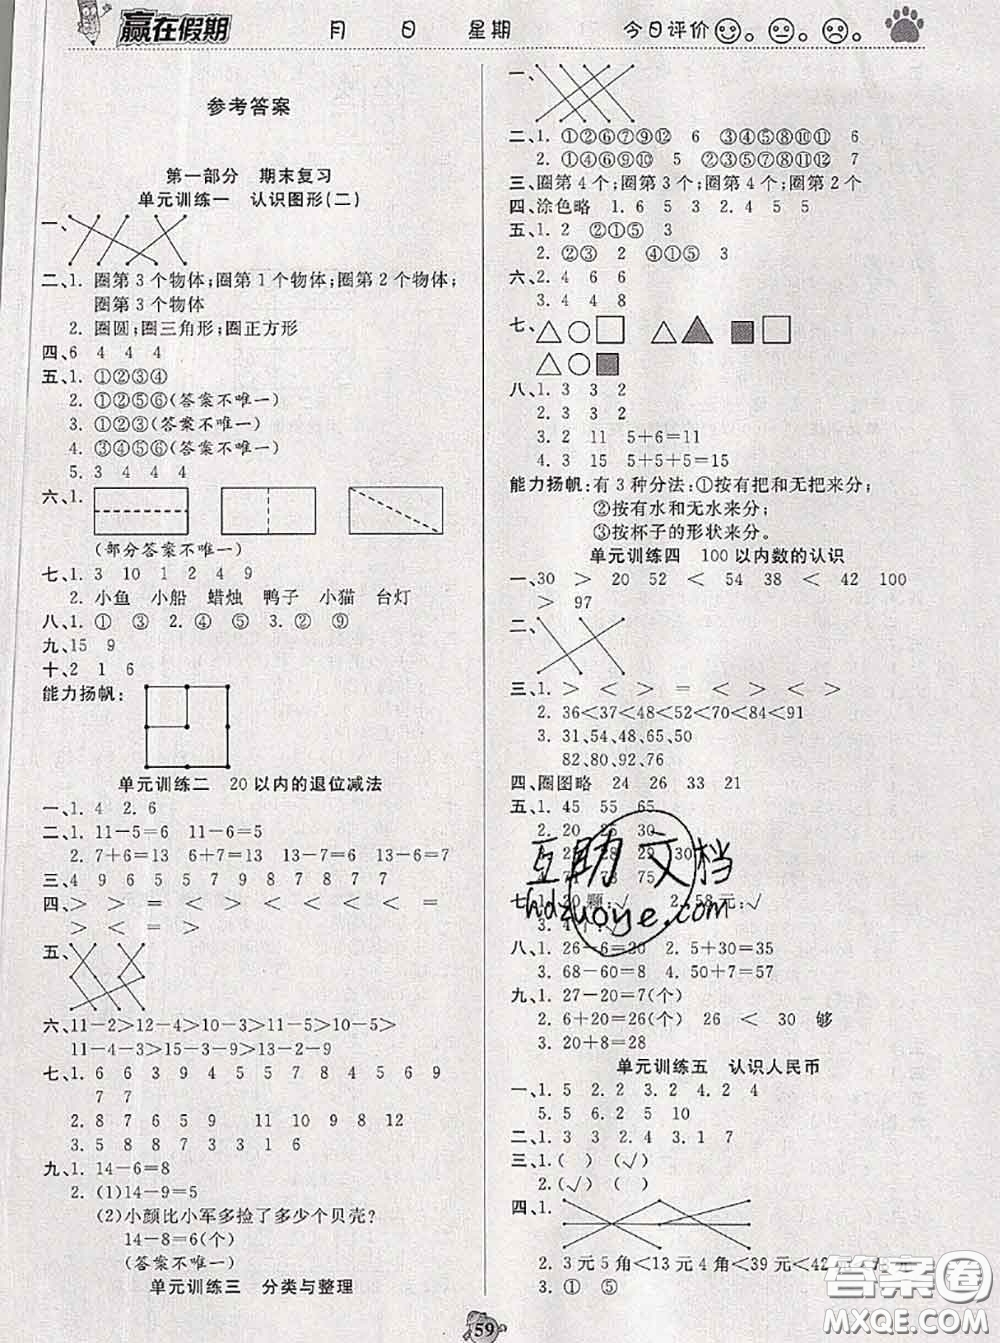 赢在假期 月 日 星期 今日评价
参考答案
第一部分 期末复习
单元训练一 认识图形(二)
一、
二、1. 圈第3个物体;圈第1个物体;圈第2个物体;
圈第3个物体
2. 圈圆;圈三角形;圈正方形
四、6 4 4 4
五、1. ①②③④
2. ①②⑤⑥(答案不唯一)
3. ①②③(答案不唯一)
4. ③④⑤⑥(答案不唯一)
5. 3 4 4 4
六、1.
(部分答案不唯一)
七、1. 3 10 1 2 4 9
2. 小鱼 小船 蜡烛 鸭子 小猫 台灯
八、1. ① ③ 2. ④ ⑤ 3. ② ⑨
九、15 9
十、2 1 6
能力扬帆:
单元训练二 20以内的退位减法
一、1. 4 2. 6
二、1. 11-5=6 11-6=5
2. 7+6=13 6+7=13 13-7=6 13-6=7
三、4 9 6 9 5 5 7 4 7 6
四、> > = < > < < < < <
> < < = >
五、
六、11-2>12-4>10-3>11-5>10-5>
11-4-3>15-9-1>13-2-9
七、1. 8 3 9 4 8 9 7 4 9 6
7 7
2. 8 7 6 5 9 9 8 7 6
3. 5 8 8 7 3 3 1 6 6
九、1. 14-6=8
2. (1)14-9=5
(2)小颜比小军多捡了多少个贝壳?
14-8=6(个)
(答案不唯一)
单元训练三 分类与整理
一、
二、1. ①②⑥⑦⑨⑫ 6 ③④⑤⑧⑩⑪ 6
2. ①⑥⑧⑩⑫ 5 ②③④⑤⑦⑨⑪ 7
三、圈第4个;圈第5个;圈第4个;圈第2个
四、涂色略 1. 6 5 3 2. 4 5 5
五、1. 2 ②①⑤ 3
2. ②③ 2 ④①⑤ 3
六、2. 4 6 6
3. 4 4 8
七、
八、1. 3 3 2
2. 3 3 2
3. 2 11 5+6=11
4. 3 15 5+5+5=15
能力扬帆:有3种分法:①按有把和无把来分;
②按有水和无水来分;
③按杯子的形状来分。
单元训练四 100以内数的认识
一、30 > 20 52 < 58 < 42 100
> 97
二、
三、1. > < < > = < > > < <
2. 36<37<48<52<70<84<91
3. 31,54,48,65,50
82,80,92,76
四、圈图略 24 26 33 21
五、1. 45 55 65
2. 20 25 30
28 29 30
73 74 75
七、1. 20颗:√ 2. 58元:√
八、1. 26-6=20 2. 5+30=35
3. 68-60=8 4. 50+7=57
九、1. 27-20=7(个)
2. 6+20=26(个) 26 < 30 够
3. 20+8=28
单元训练五 认识人民币
一、1. 5 2. 2 3. 2 4. 2 4
5. 5 6. 2 5 10
二、1. 3 3 2. 4 3. 4 5 2
三、1. ( ) (√)
2. (√) ( )
四、1.
2. 3元5角<13元4角<39元<42
3. ① ⑤
互助文档
hdzuoye.com
答案圈
MXQE.COM
59